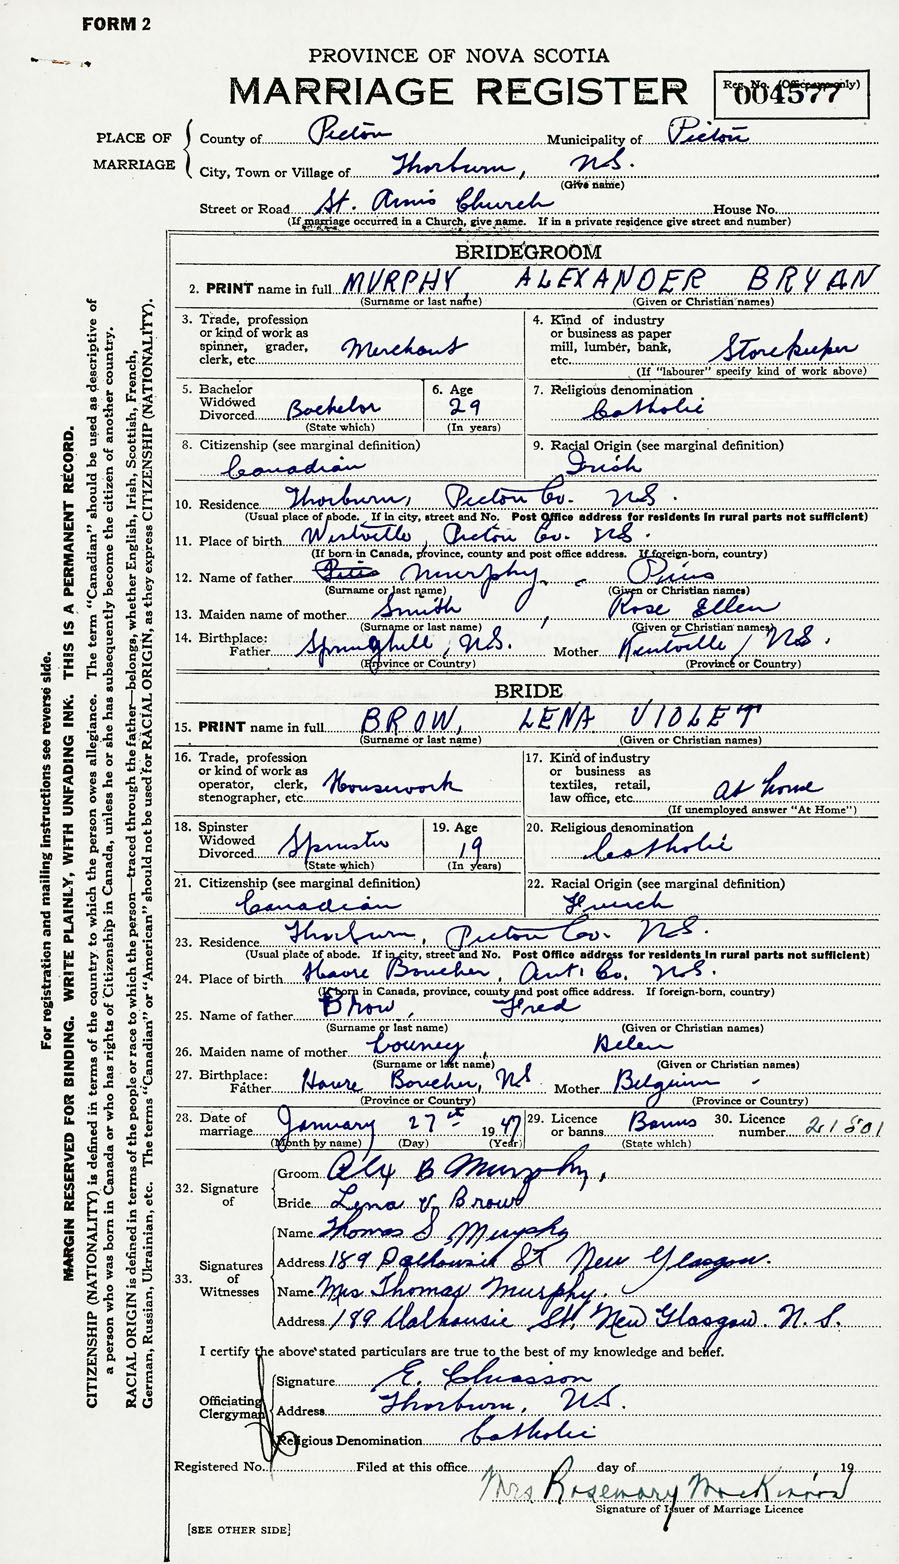 FORM 2
PROVINCE OF NOVA SCOTIA
MARRIAGE REGISTER
Reg. No. (Office use only)
004577
PLACE OF MARRIAGE
County of Pictou Municipality of Pictou
City, Town or Village of Thorburn, N.S.
(Give name)
Street or Road St. Anns Church House No.
(If marriage occurred in a Church, give name. If in a private residence give street and number)
BRIDEGROOM
2. PRINT name in full MURPHY, ALEXANDER BRYAN
(Surname or last name) (Given or Christian names)
3. Trade, profession
or kind of work as
spinner, grader,
clerk, etc. Merchant
4. Kind of industry
or business as paper
mill, lumber, bank,
etc. Storekeeper
(If "labourer" specify kind of work above)
5. Bachelor
Widowed
Divorced Bachelor
(State which)
6. Age
29
(In years)
7. Religious denomination
Catholic
8. Citizenship (see marginal definition)
Canadian
9. Racial Origin (see marginal definition)
Irish
10. Residence Thorburn, Pictou Co. N.S.
(Usual place of abode. If in city, street and No. Post Office address for residents in rural parts not sufficient)
11. Place of birth Westville, Pictou Co. N.S.
(If born in Canada, province, county and post office address. If foreign-born, country)
12. Name of father Pius Murphy, Pius
(Surname or last name) (Given or Christian names)
13. Maiden name of mother Smith, Rose Ellen
(Surname or last name) (Given or Christian names)
14. Birthplace:
Father Springhill, N.S. Mother Kentville, N.S.
(Province or Country) (Province or Country)
BRIDE
15. PRINT name in full BROW, LENA VIOLET
(Surname or last name) (Given or Christian names)
16. Trade, profession
or kind of work as
operator, clerk,
stenographer, etc. Housework
17. Kind of industry
or business as
textiles, retail,
law office, etc. At home
(If unemployed answer "At Home")
18. Spinster
Widowed
Divorced Spinster
(State which)
19. Age
19
(In years)
20. Religious denomination
Catholic
21. Citizenship (see marginal definition)
Canadian
22. Racial Origin (see marginal definition)
French
23. Residence Thorburn, Pictou Co. N.S.
(Usual place of abode. If in city, street and No. Post Office address for residents in rural parts not sufficient)
24. Place of birth Havre Boucher, Ant. Co. N.S.
(If born in Canada, province, county and post office address. If foreign-born, country)
25. Name of father Brow, Fred
(Surname or last name) (Given or Christian names)
26. Maiden name of mother Helen
(Surname or last name) (Given or Christian names)
27. Birthplace:
Father Havre Boucher, NS Mother Belgium
(Province or Country) (Province or Country)
28. Date of
marriage January 27th 1947
(Month by name) (Day) (Year)
29. Licence
or banns Banns
(State which)
30. Licence
number 21501
32. Signature of
Groom Alex B Murphy,
Bride Lena V. Brow
33. Signatures of Witnesses
Name Thomas S. Murphy
Address 189 Dalhousie St. New Glasgow.
Name Mrs Thomas Murphy.
Address 189 Dalhousie St. New Glasgow. N.S.
I certify the above stated particulars are true to the best of my knowledge and belief.
Officiating Clergyman
Signature E. Chiasson
Address Thorburn, N.S.
Religious Denomination Catholic
Registered No. Filed at this office day of 19
Mrs Rosemary MacKinnon
Signature of Issuer of Marriage Licence
[SEE OTHER SIDE]
For registration and mailing instructions see reverse side.
MARGIN RESERVED FOR BINDING. WRITE PLAINLY, WITH UNFADING INK. THIS IS A PERMANENT RECORD.
CITIZENSHIP (NATIONALITY) is defined in terms of the country to which the person owes allegiance. The term "Canadian" should be used as descriptive of
a person who was born in Canada or who has rights of Citizenship in Canada, unless he or she has subsequently become the citizen of another country.
RACIAL ORIGIN is defined in terms of the people or race to which the person—traced through the father—belongs, whether English, Irish, Scottish, French,
German, Russian, Ukrainian, etc. The terms "Canadian" or "American" should not be used for RACIAL ORIGIN, as they express CITIZENSHIP (NATIONALITY).